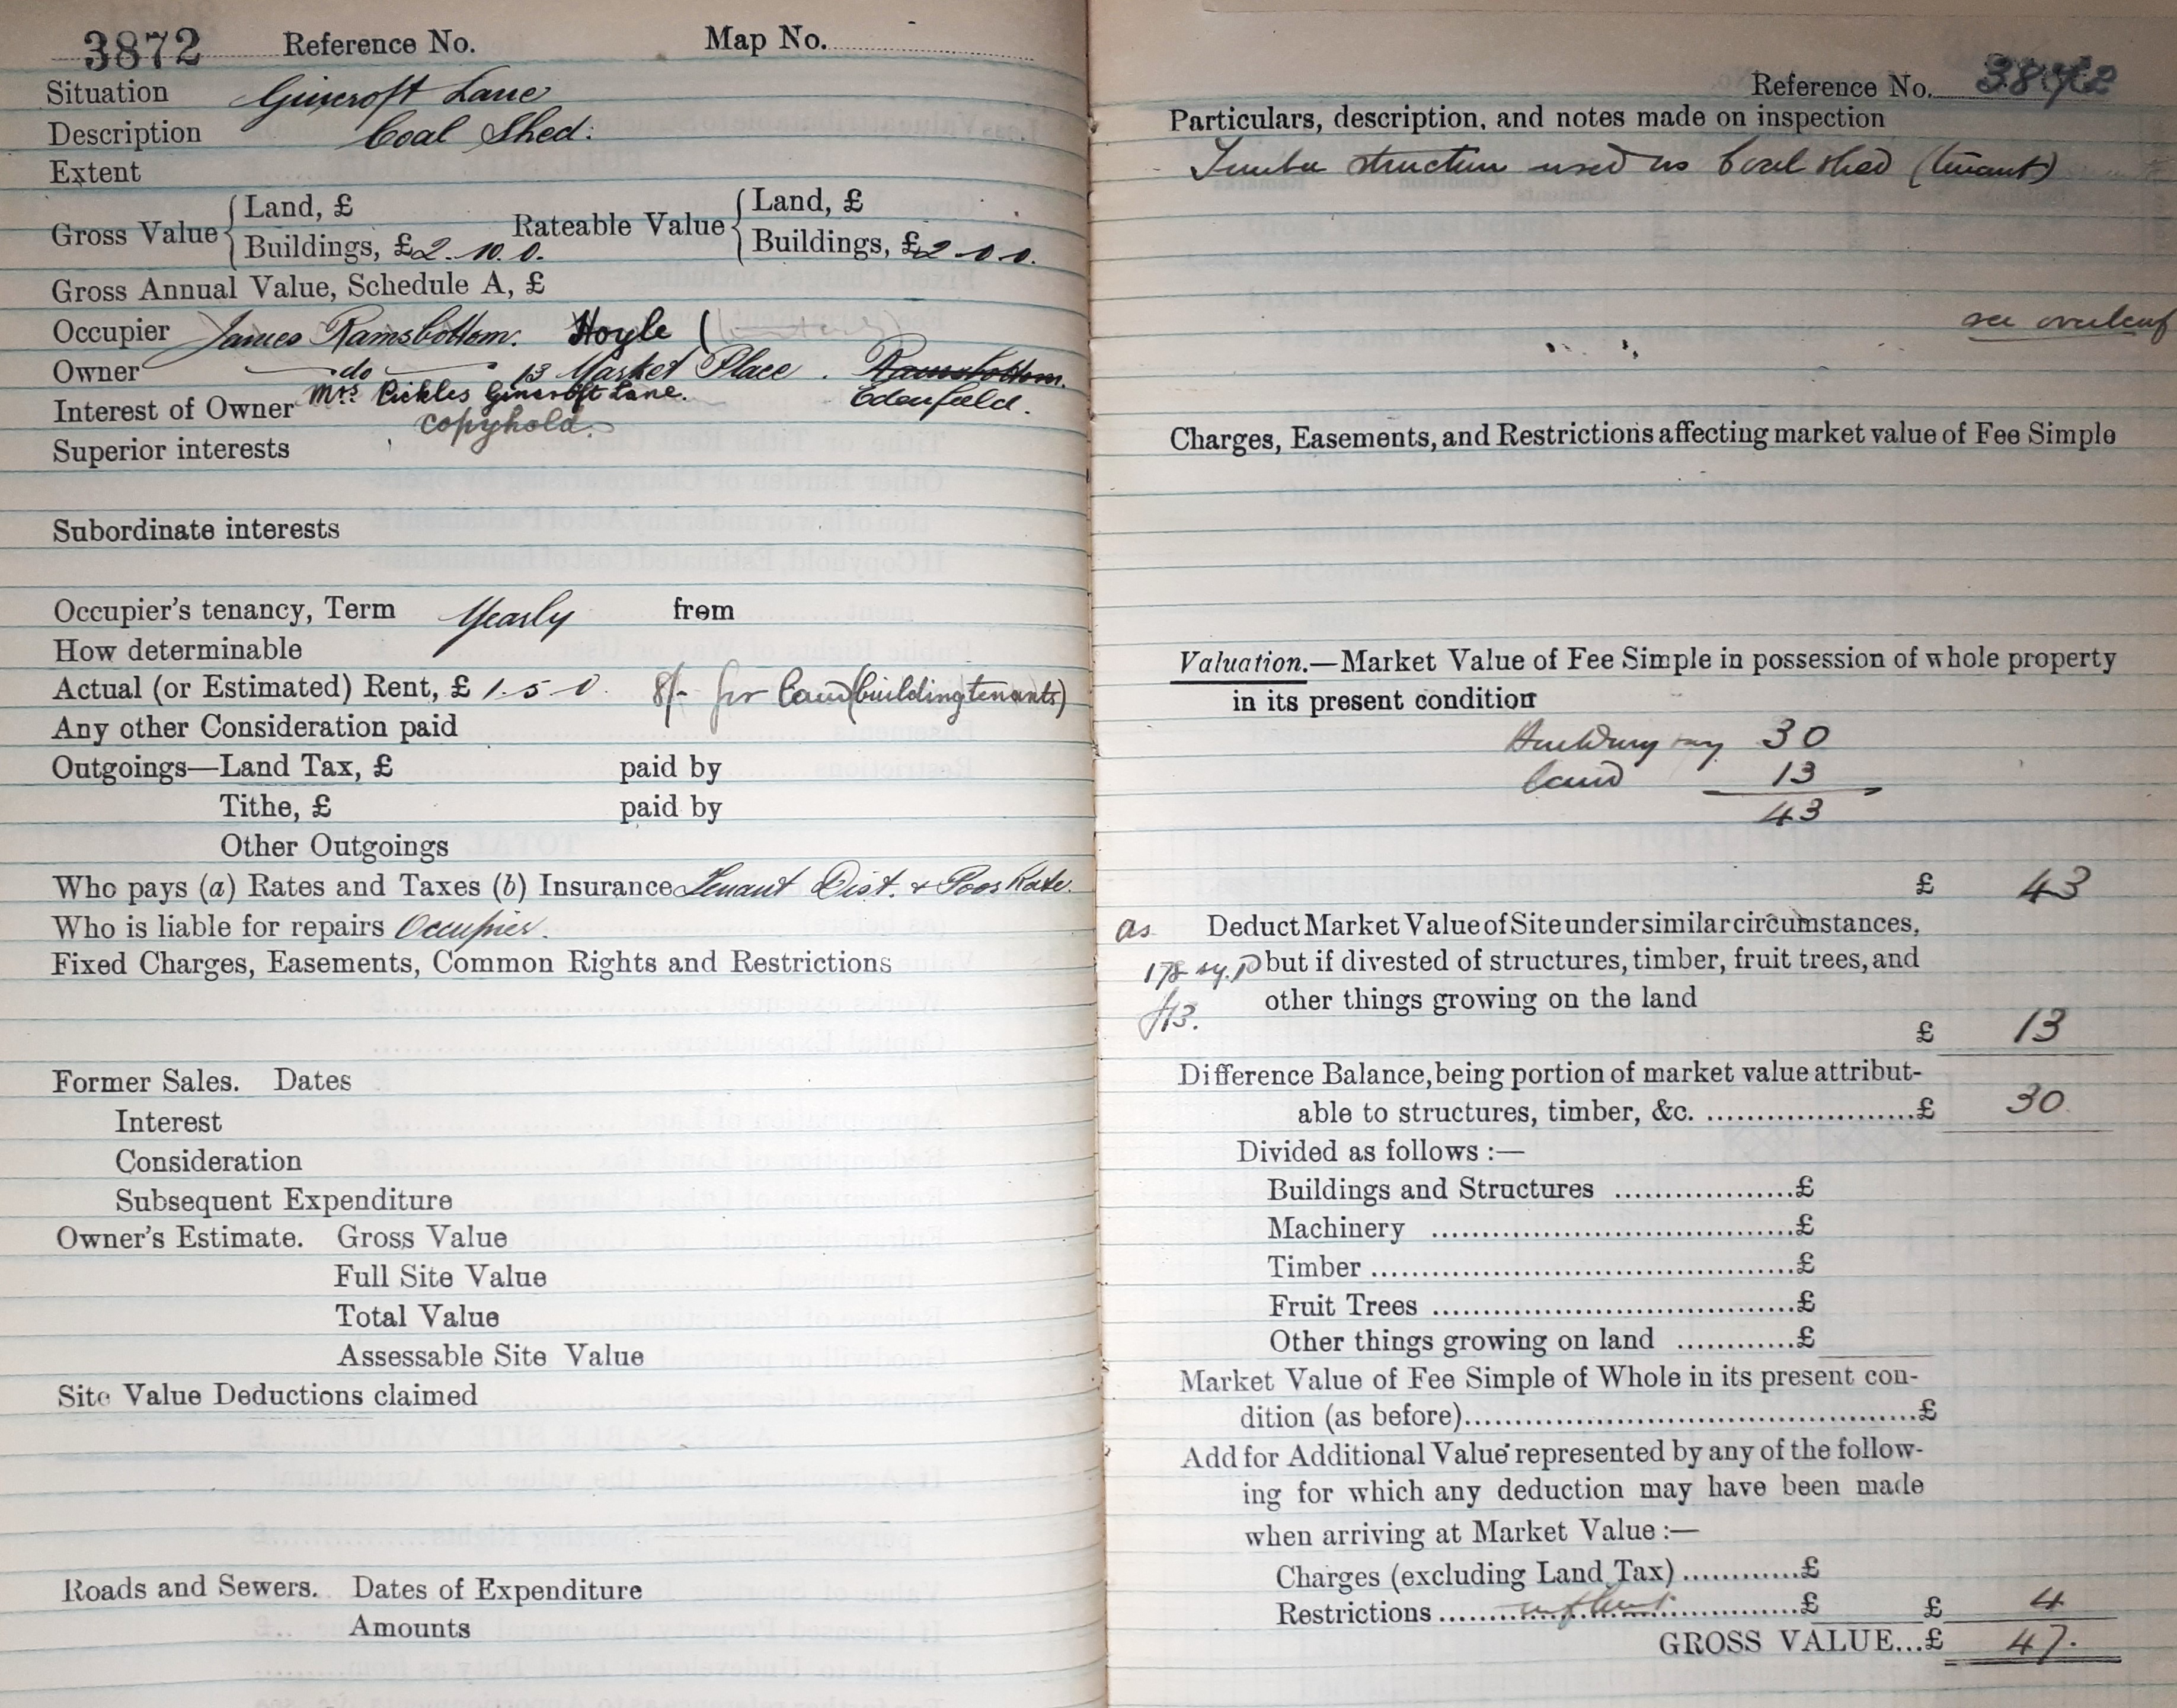 3872 Reference No. Map No.
Situation Gincroft Lane
Description Coal Shed.
Extent
Gross Value { Land, £
Buildings, £ 2. 10. 0.
Rateable Value { Land, £
Buildings, £ 2 - 0 - 0.
Gross Annual Value, Schedule A, £
Occupier James Ramsbottom. Hoyle (
Owner do 13 Market Place. Ramsbottom.
Edenfield.
Mrs Pickles Gincroft Lane.
Interest of Owner
copyhold.
Superior interests
Subordinate interests
Occupier's tenancy, Term Yearly from
How determinable
Actual (or Estimated) Rent, £ 1. 5 - 0. 8/- for land (building tenants)
Any other Consideration paid
Outgoings—Land Tax, £ paid by
Tithe, £ paid by
Other Outgoings
Who pays (a) Rates and Taxes (b) Insurance Tenant Dist. + Poor Rate.
Who is liable for repairs Occupier.
Fixed Charges, Easements, Common Rights and Restrictions
Former Sales. Dates
Interest
Consideration
Subsequent Expenditure
Owner's Estimate. Gross Value
Full Site Value
Total Value
Assessable Site Value
Site Value Deductions claimed
Roads and Sewers. Dates of Expenditure
Amounts
Reference No. 3872
Particulars, description, and notes made on inspection
Timber structure used as Coal shed (tenant)
see overleaf
Charges, Easements, and Restrictions affecting market value of Fee Simple
Valuation.—Market Value of Fee Simple in possession of whole property
in its present condition
say 30
land 13
43
£ 43
as
178 sq. yd
£13.
Deduct Market Value of Site under similar circumstances,
but if divested of structures, timber, fruit trees, and
other things growing on the land
£ 13
Difference Balance, being portion of market value attribut-
able to structures, timber, &c. £ 30
Divided as follows :—
Buildings and Structures £
Machinery £
Timber £
Fruit Trees £
Other things growing on land £
Market Value of Fee Simple of Whole in its present con-
dition (as before) £
Add for Additional Value represented by any of the follow-
ing for which any deduction may have been made
when arriving at Market Value :—
Charges (excluding Land Tax) £
Restrictions £ £ 4
GROSS VALUE...£ 47.